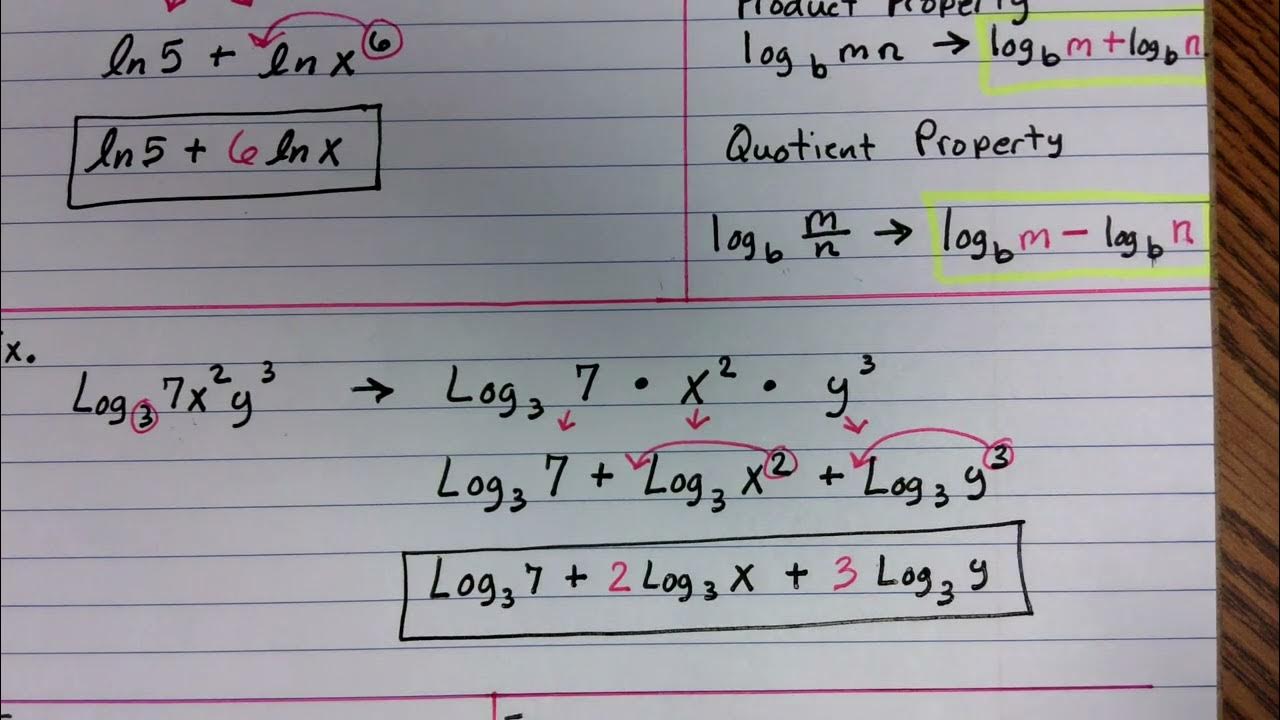 ln 5 + ln x⁶
ln 5 + 6 ln x
Product Property
log_b mn → log_b m + log_b n
Quotient Property
log_b m/n → log_b m − log_b n
x.
Log₃ 7x²y³ → Log₃ 7 · x² · y³
Log₃ 7 + Log₃ x² + Log₃ y³
Log₃ 7 + 2 Log₃ x + 3 Log₃ y